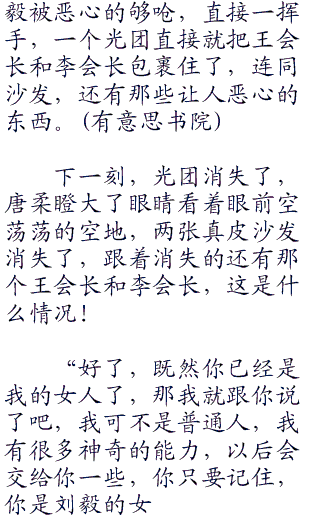 毅被恶心的够呛，直接一挥
手，一个光团直接就把王会
长和李会长包裹住了，连同
沙发，还有那些让人恶心的
东西。(有意思书院)
下一刻，光团消失了，
唐柔瞪大了眼睛看着眼前空
荡荡的空地，两张真皮沙发
消失了，跟着消失的还有那
个王会长和李会长，这是什
么情况！
“好了，既然你已经是
我的女人了，那我就跟你说
了吧，我可不是普通人，我
有很多神奇的能力，以后会
交给你一些，你只要记住，
你是刘毅的女